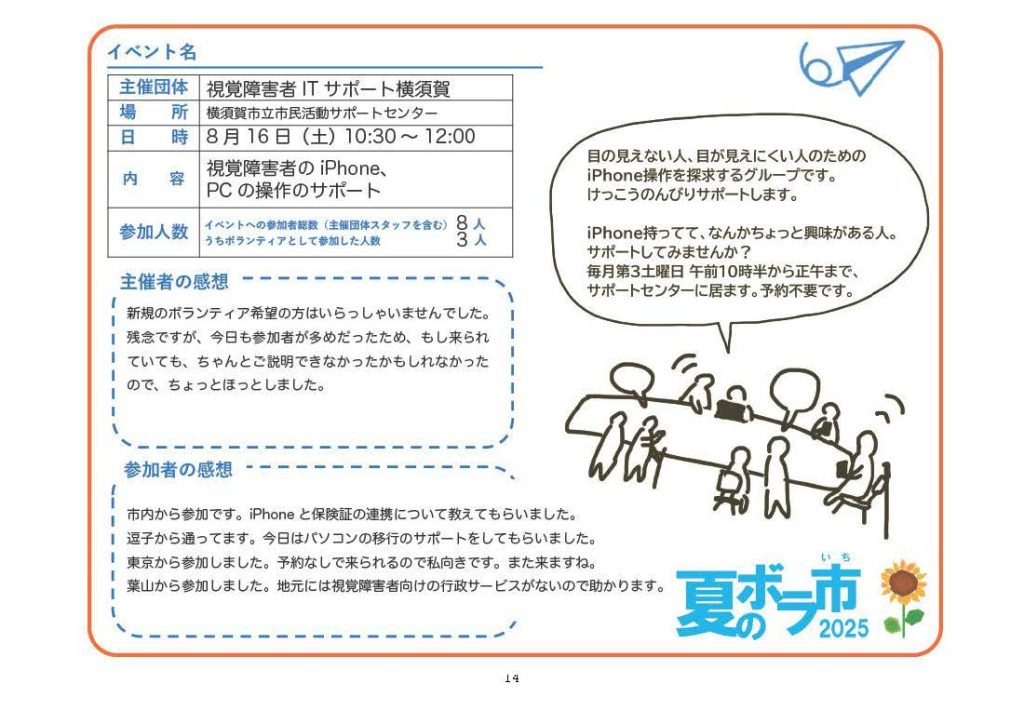 イベント名
主催団体 視覚障害者 IT サポート横須賀
場　所 横須賀市立市民活動サポートセンター
日　時 8 月 16 日（土）10:30 ～ 12:00
内　容 視覚障害者の iPhone、
PC の操作のサポート
参加人数 イベントへの参加者総数（主催団体スタッフを含む） 8 人
うちボランティアとして参加した人数 3 人
主催者の感想
新規のボランティア希望の方はいらっしゃいませんでした。
残念ですが、今日も参加者が多めだったため、もし来られ
ていても、ちゃんとご説明できなかったかもしれなかった
ので、ちょっとほっとしました。
参加者の感想
市内から参加です。iPhone と保険証の連携について教えてもらいました。
逗子から通ってます。今日はパソコンの移行のサポートをしてもらいました。
東京から参加しました。予約なしで来られるので私向きです。また来ますね。
葉山から参加しました。地元には視覚障害者向けの行政サービスがないので助かります。
目の見えない人、目が見えにくい人のための
iPhone操作を探求するグループです。
けっこうのんびりサポートします。
iPhone持ってて、なんかちょっと興味がある人。
サポートしてみませんか？
毎月第3土曜日 午前10時半から正午まで、
サポートセンターに居ます。予約不要です。
いち
夏のボラ市
2025
14